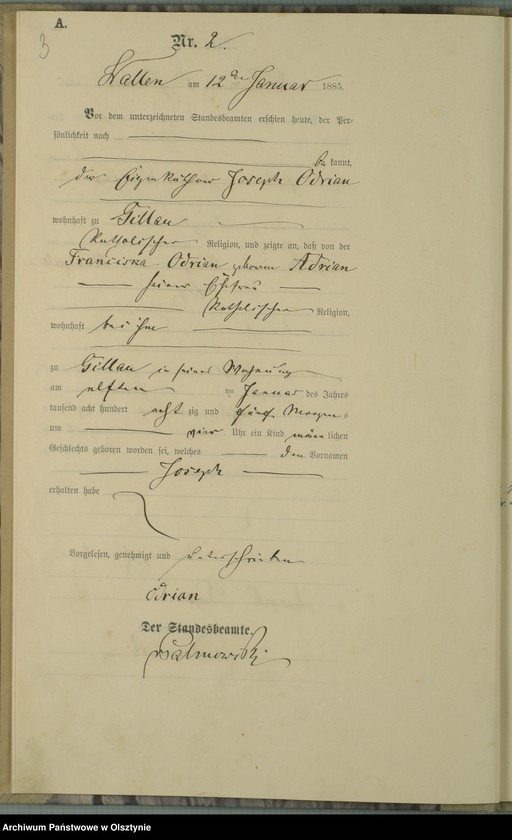 A.
3
Nr. 2.
Wallen am 12ten Januar 1885.
Vor dem unterzeichneten Standesbeamten erschien heute, der Per-
sönlichkeit nach
be kannt,
der Eigenkäthner Joseph Odrian
wohnhaft zu Gillau
katholischer Religion, und zeigte an, daß von der
Franciska Odrian geborene Adrian
seiner Ehefrau
katholischer Religion,
wohnhaft bei ihm
zu Gillau in seiner Wohnung
am elften ten Januar des Jahres
tausend acht hundert acht zig und fünf Morgens
um vier Uhr ein Kind männ lichen
Geschlechts geboren worden sei, welches den Vornamen
Joseph
erhalten habe
Vorgelesen, genehmigt und unterschrieben
Odrian
Der Standesbeamte.
Archiwum Państwowe w Olsztynie